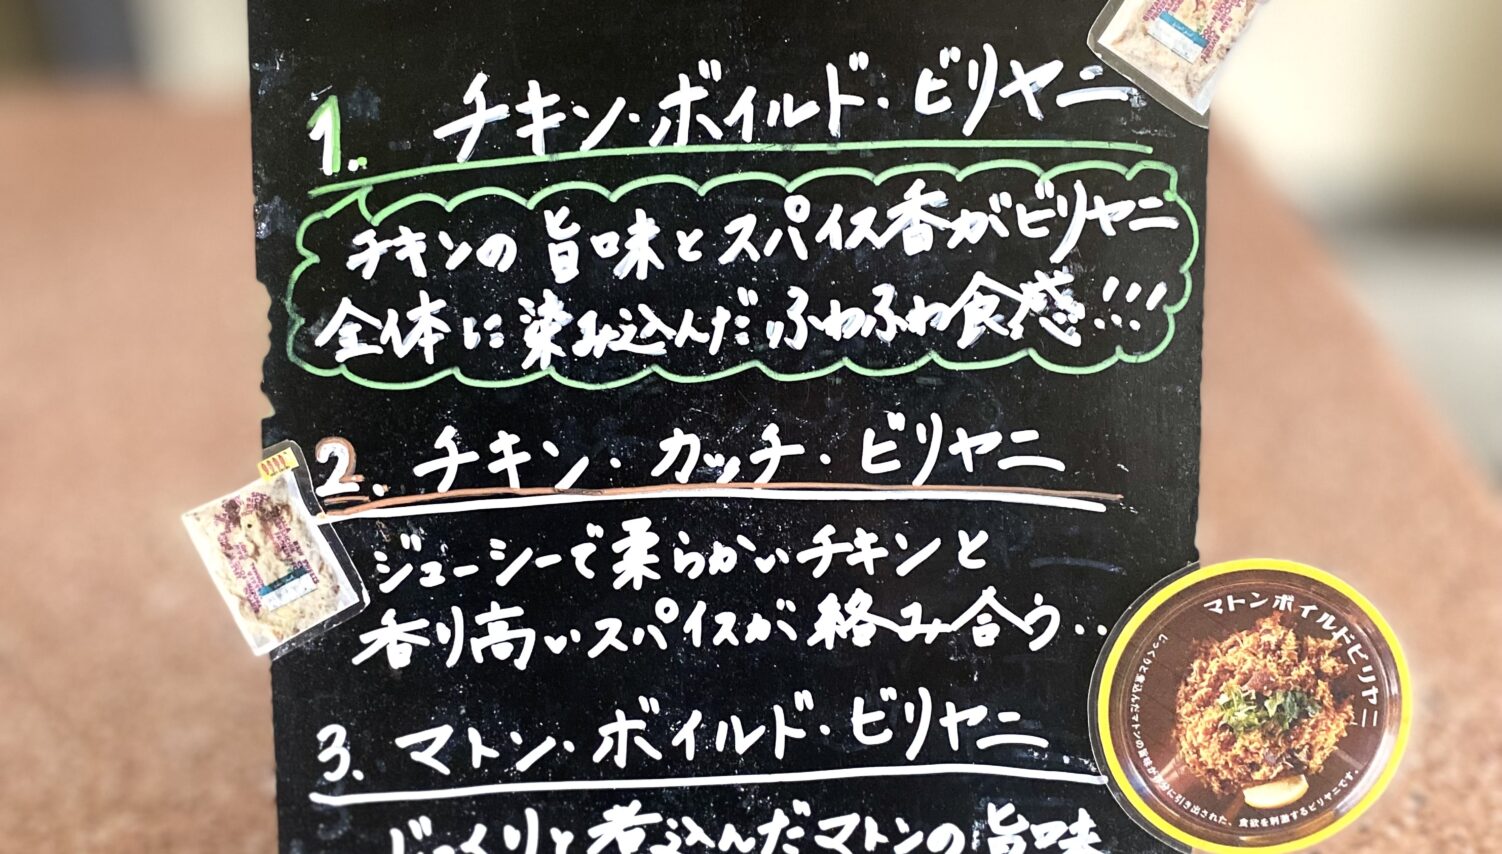 1. チキン・ボイルド・ビリヤニ
チキンの旨味とスパイス香がビリヤニ
全体に染み込んだふわふわ食感!!!
2. チキン・カッチ・ビリヤニ
ジューシーで柔らかいチキンと
香り高いスパイスが絡み合う‥
3. マトン・ボイルド・ビリヤニ
じっくりと煮込んだマトンの旨味
マトンボイルドビリヤニ
じっくりと煮込んだマトンの旨味が十分に引き出された、食欲を刺激するビリヤニです。